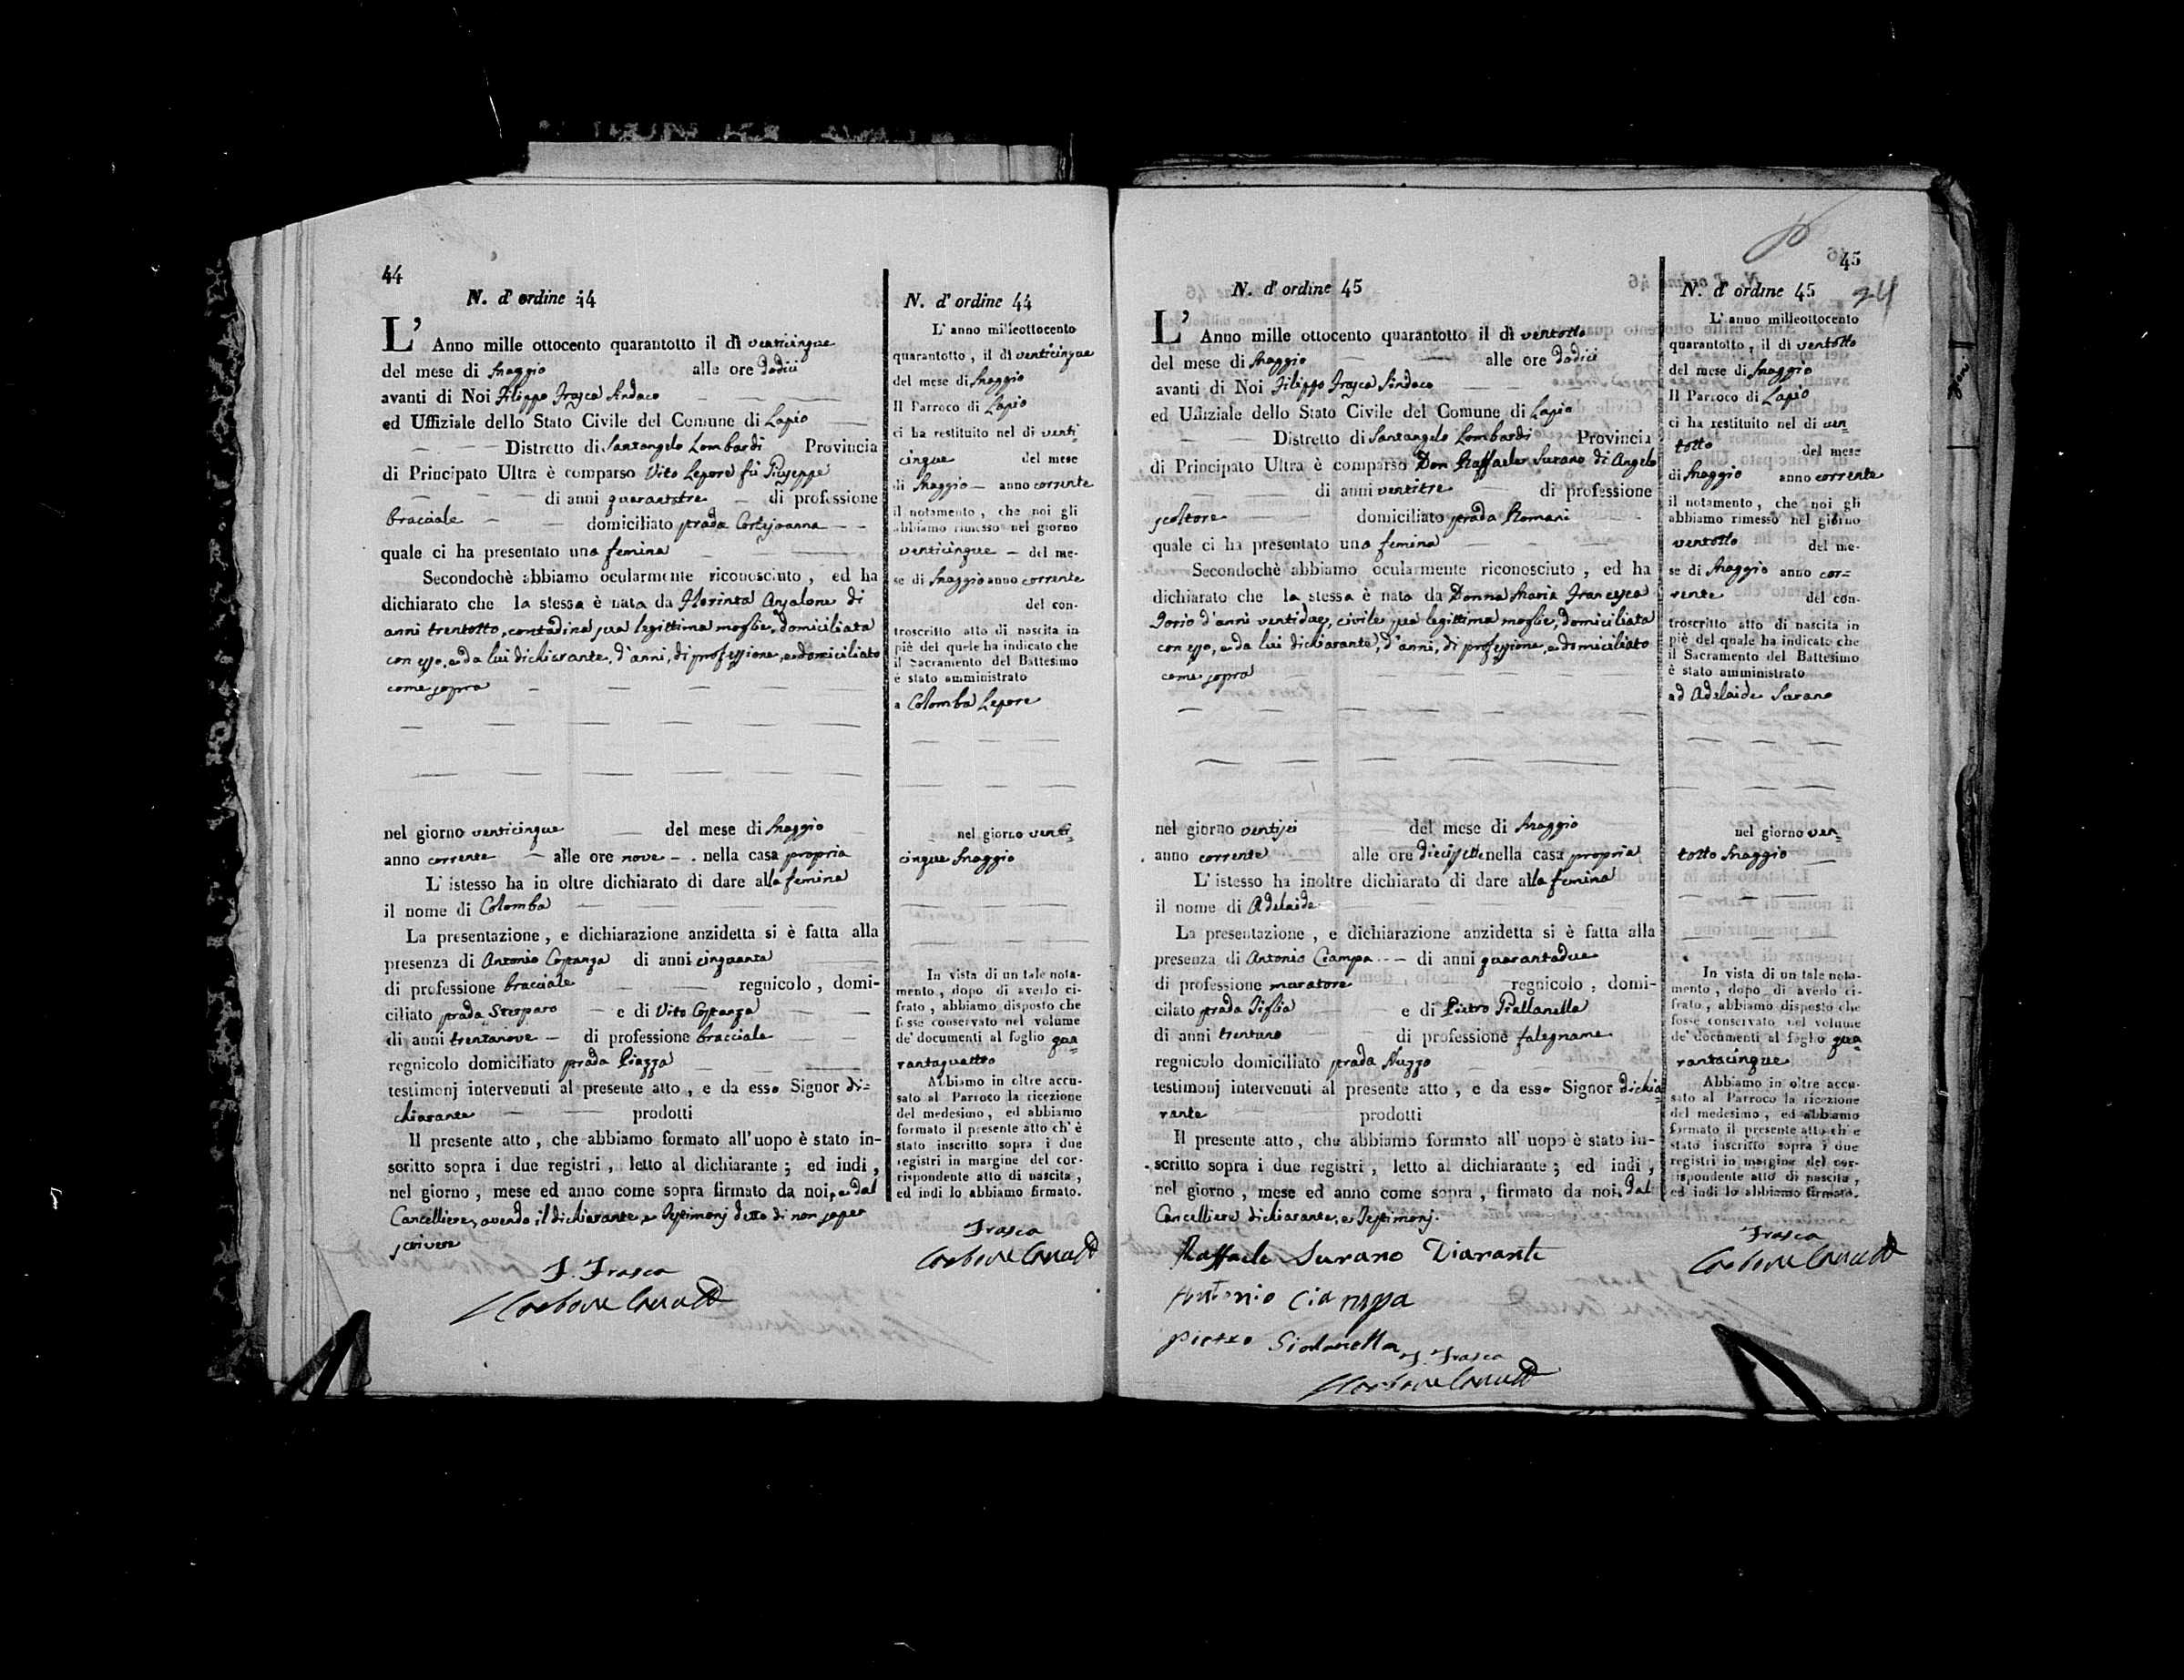 44
N. d' ordine 44
L' Anno mille ottocento quarantotto il dì venticinque
del mese di Maggio alle ore dodici
avanti di Noi Filippo Frasca Sindaco
ed Uffiziale dello Stato Civile del Comune di Lapio
Distretto di Santangelo Lombardi Provincia
di Principato Ultra è comparso Vito Lepore fù Giuseppe
di anni quarantatre di professione
bracciale domiciliato strada Cortejoanna
quale ci ha presentato una femina
Secondochè abbiamo ocularmente riconosciuto, ed ha
dichiarato che la stessa è nata da Florinta Anzalone di
anni trentotto, contadina sua legittima moglie, domiciliata
con esso, e da lui dichiarante, d'anni, di professione, e domiciliato
come sopra
nel giorno venticinque del mese di Maggio
anno corrente alle ore nove nella casa propria
L' istesso ha in oltre dichiarato di dare alla femina
il nome di Colomba
La presentazione, e dichiarazione anzidetta si è fatta alla
presenza di Antonio Costanza di anni cinquanta
di professione bracciale regnicolo, domi-
ciliato strada e di Vito Costanza
di anni trentanove di professione bracciale
regnicolo domiciliato strada Piazza
testimonj intervenuti al presente atto, e da esso Signor di=
chiarante prodotti
Il presente atto, che abbiamo formato all'uopo è stato in-
scritto sopra i due registri, letto al dichiarante; ed indi,
nel giorno, mese ed anno come sopra firmato da noi, e dal
Cancelliere, avendo il dichiarante, e Testimonj detto di non saper
scrivere
F. Frasca
N. d' ordine 44
L' anno milleottocento
quarantotto, il dì venticinque
del mese di Maggio
Il Parroco di Lapio
ci ha restituito nel dì venti=
cinque del mese
di Maggio anno corrente
il notamento, che noi gli
abbiamo rimesso nel giorno
venticinque del me-
se di Maggio anno corrente
del con-
troscritto atto di nascita in
piè del quale ha indicato che
il Sacramento del Battesimo
è stato amministrato
a Colomba Lepore
nel giorno venti=
cinque Maggio
In vista di un tale nota-
mento, dopo di averlo ci-
frato, abbiamo disposto che
fosse conservato nel volume
de' documenti al foglio qua=
rantaquattro
Abbiamo in oltre accu-
sato al Parroco la ricezione
del medesimo, ed abbiamo
formato il presente atto ch' è
stato inscritto sopra i due
registri in margine del cor-
rispondente atto di nascita,
ed indi lo abbiamo firmato.
Frasca
45
24
N. d' ordine 45
L' Anno mille ottocento quarantotto il dì ventotto
del mese di Maggio alle ore dodici
avanti di Noi Filippo Frasca Sindaco
ed Uffiziale dello Stato Civile del Comune di Lapio
Distretto di Santangelo Lombardi Provincia
di Principato Ultra è comparso Don Raffaele Surano di Angelo
di anni ventitre di professione
scoltore domiciliato strada Romani
quale ci ha presentato una femina
Secondochè abbiamo ocularmente riconosciuto, ed ha
dichiarato che la stessa è nata da Donna Maria Francesca
Iorio d'anni ventidue, civile sua legittima moglie, domiciliata
con esso, e da lui dichiarante, d'anni, di professione, e domiciliato
come sopra
nel giorno ventisei del mese di Maggio
anno corrente alle ore diecisette nella casa propria
L' istesso ha inoltre dichiarato di dare alla femina
il nome di Adelaide
La presentazione, e dichiarazione anzidetta si è fatta alla
presenza di Antonio Ciampa di anni quarantadue
di professione muratore regnicolo, domi-
cilato strada Tiglia e di Pietro
di anni trentuno di professione falegname
regnicolo domiciliato strada Nuzzo
testimonj intervenuti al presente atto, e da esso Signor dichia=
rante prodotti
Il presente atto, che abbiamo formato all' uopo è stato in-
scritto sopra i due registri, letto al dichiarante; ed indi,
nel giorno, mese ed anno come sopra, firmato da noi, dal
Cancelliere dichiarante, e Testimonj.
Raffaele Surano Diarante
Antonio Ciampa
Pietro
F. Frasca
N. d' ordine 45
L' anno milleottocento
quarantotto, il dì ventotto
del mese di Maggio
Il Parroco di Lapio
ci ha restituito nel dì ven=
totto del mese
di Maggio anno corrente
il notamento, che noi gli
abbiamo rimesso nel giorno
ventotto del me-
se di Maggio anno cor=
rente del con-
troscritto atto di nascita in
piè del quale ha indicato che
il Sacramento del Battesimo
è stato amministrato
ad Adelaide Surano
nel giorno ven=
totto Maggio
In vista di un tale nota-
mento, dopo di averlo ci-
frato, abbiamo disposto che
fosse conservato nel volume
de' documenti al foglio qua=
rantacinque
Abbiamo in oltre accu-
sato al Parroco la ricezione
del medesimo, ed abbiamo
formato il presente atto ch' è
stato inscritto sopra i due
registri in margine del cor-
rispondente atto di nascita,
ed indi lo abbiamo firmato.
Frasca